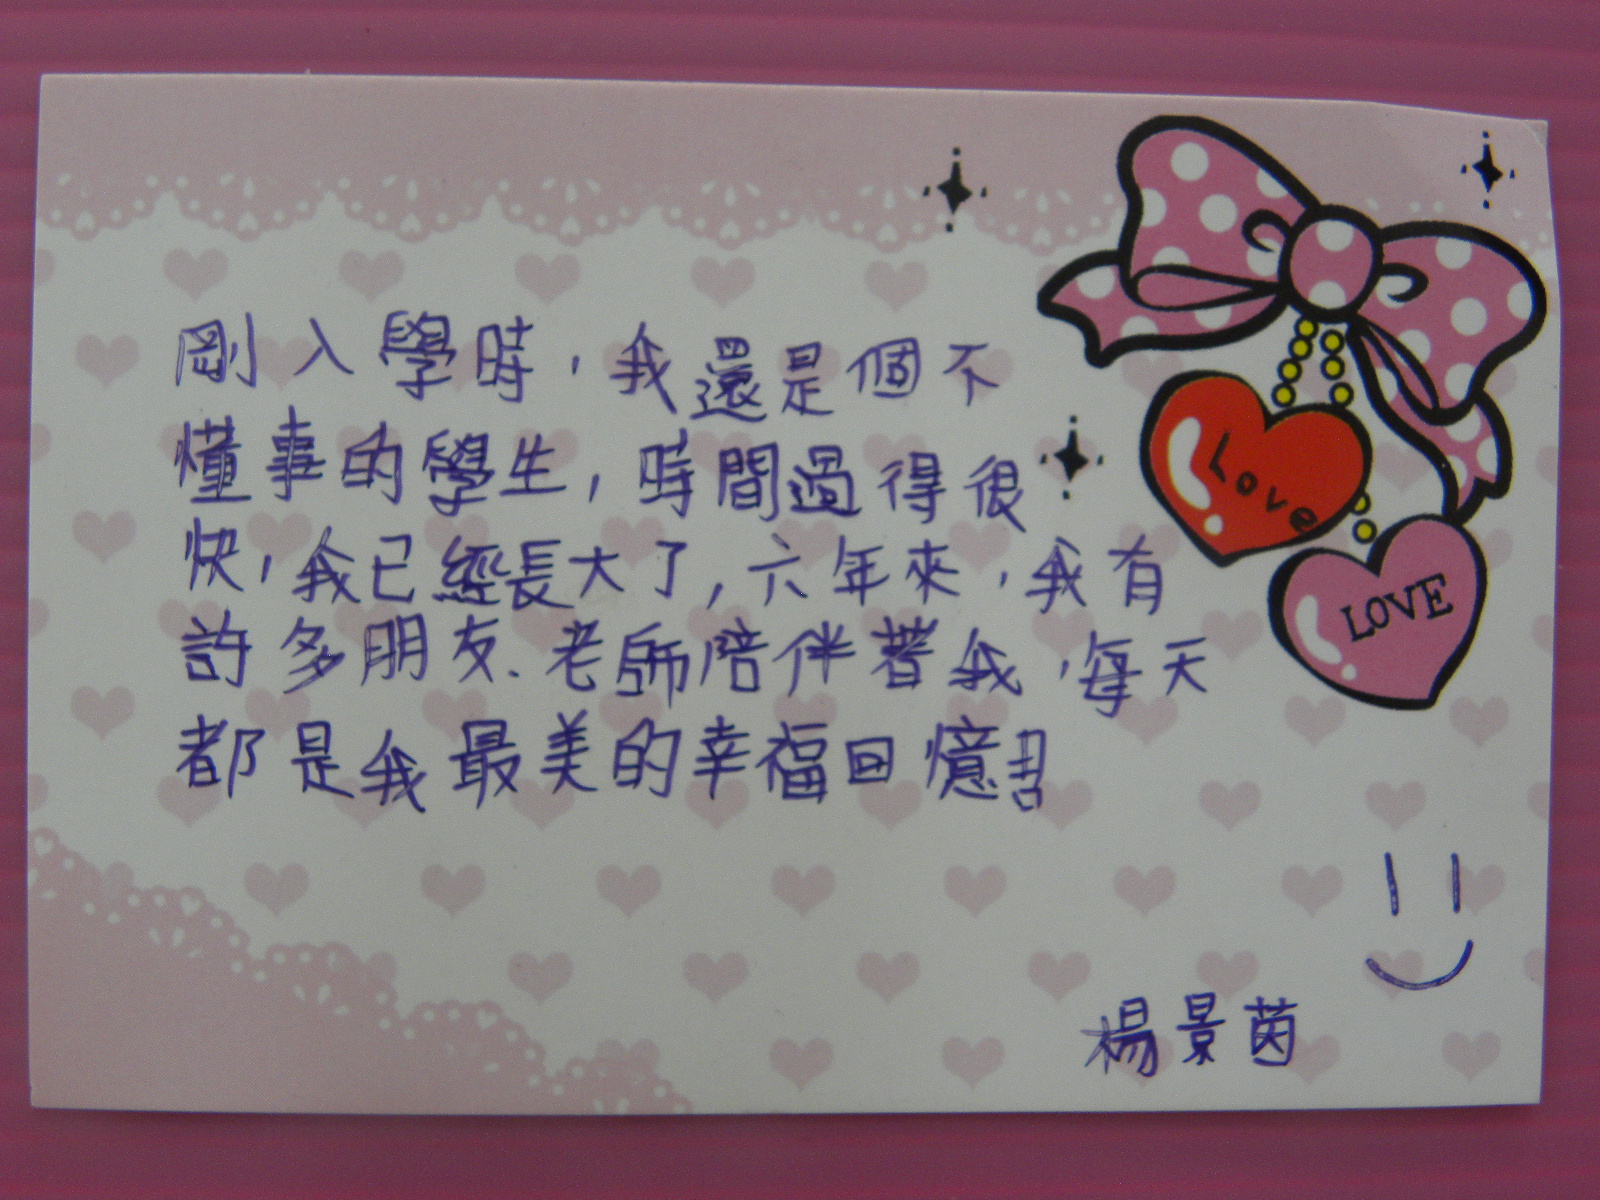 剛入學時,我還是個不
懂事的學生,時間過得很
快,我已經長大了,六年來,我有
許多朋友、老師陪伴著我,每天
都是我最美的幸福回憶!!
楊景茵
Love
LOVE